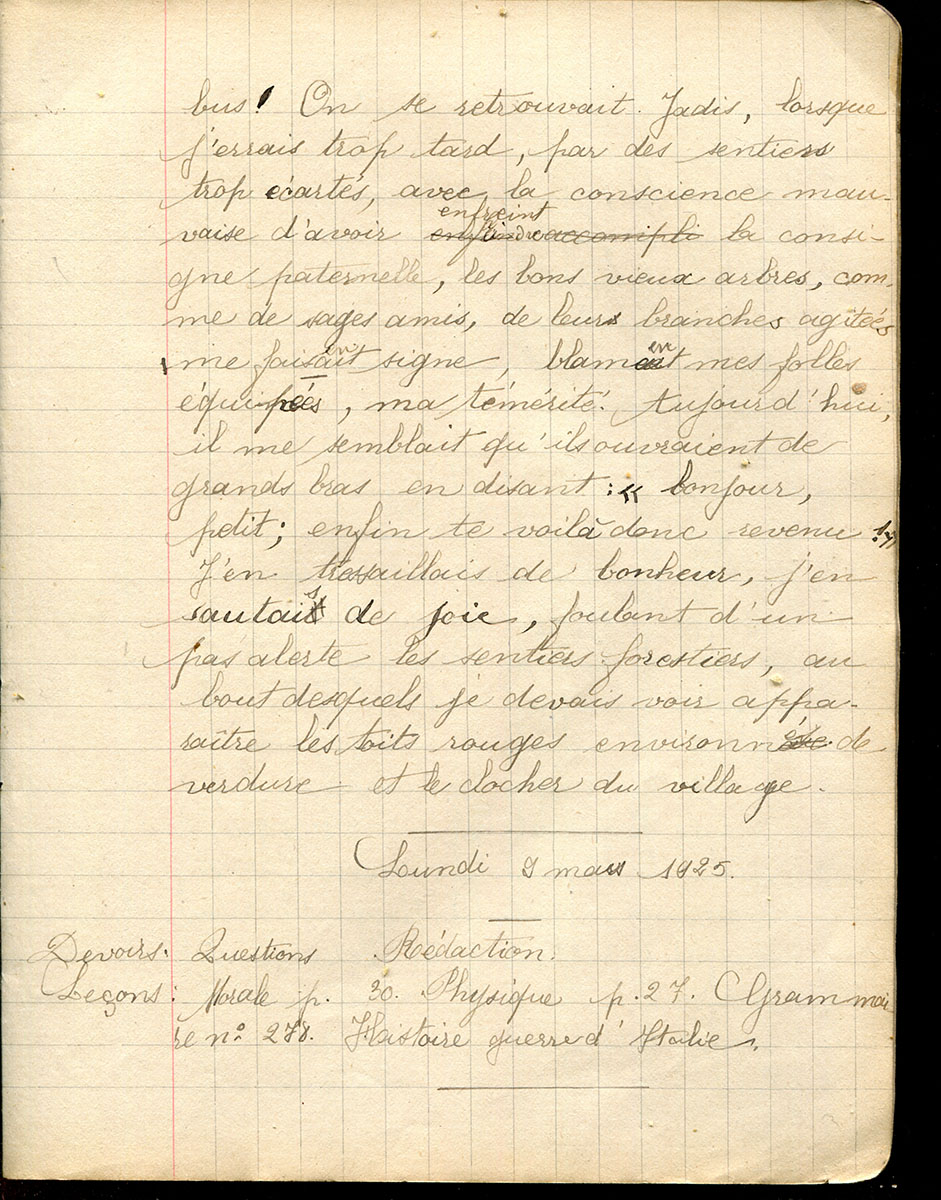 bus! On se retrouvait. Jadis, lorsque
j'errais trop tard, par des sentiers
trop écartés, avec la conscience mau-
enfreint
vaise d'avoir enfrindre accompli la consi-
gne paternelle, les bons vieux arbres, com-
me de sages amis, de leurs branches agitées
me faisaient signe, blamaient mes folles
équipées, ma témérité. Aujourd'hui,
il me semblait qu'ils ouvraient de
grands bras en disant : « bonjour,
petit ; enfin te voilà donc revenu ! »
J'en tressaillais de bonheur, j'en
sautais de joie, foulant d'un
pas alerte les sentiers forestiers, au
bout desquels je devais voir appa-
raître les toits rouges environnés de
verdure et le clocher du village.
Lundi 9 mars 1925.
Devoirs. Questions Rédaction.
Leçons : Morale p. 30. Physique p. 27. Grammai
re n° 278. Histoire guerre d'Italie.